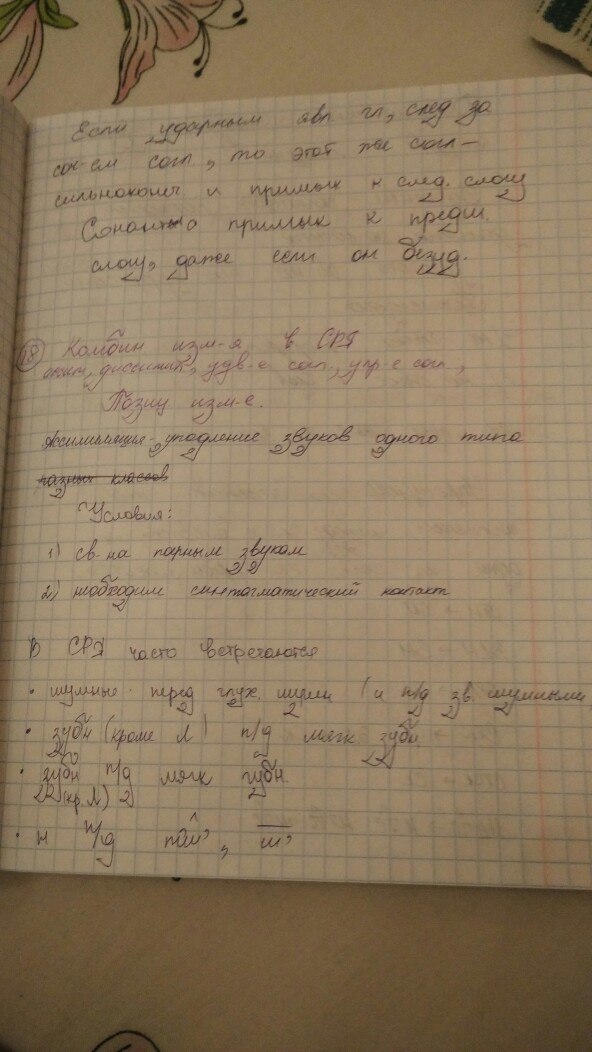 Если ударным явл гл, след за
соч-ем согл, то этот же согл -
сильноконеч. и примык к след. слогу
Сонант-а примык к предш.
слогу, даже если он безуд.
18 Комбин изм-я в СРЯ
ассим, диссимил, удв-е согл., упр-е согл.,
Позиц изм-е.
Ассимиляция - уподобление звуков одного типа
разных классов
Условия:
1) св-на парным звуком
2) необходим синтагматический контакт
В СРЯ часто встречаются
• шумные перед глух. шумн (и п/д зв. шумными)
• зубн (кроме Л) п/д мягк зубн
• зубн п/д мягк губн.
(кр. Л)
• н п/д